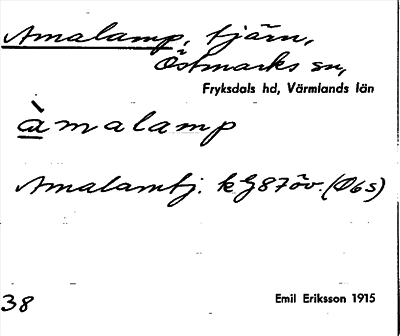 Amalamp, tjärn,
Östmarks sn,
Fryksdals hd, Värmlands län
àmalamp
Amalamtj. kG87öv. (Ö6s)
38
Emil Eriksson 1915